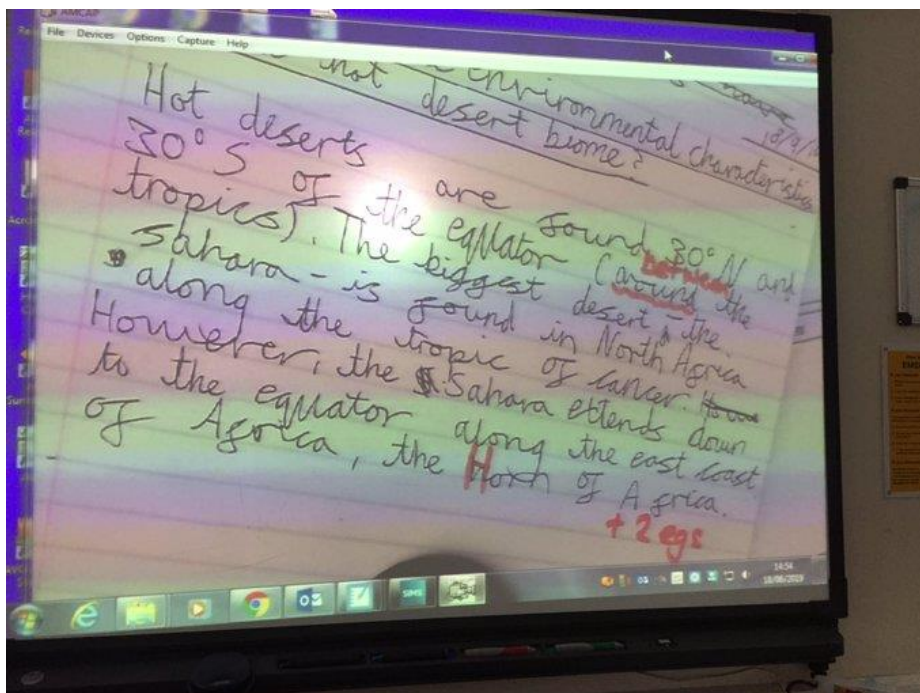 AMCAP
File Devices Options Capture Help
environmental characteristics
hot desert biome?
Hot deserts are found 30° N and
30° S of the equator (around the
between
tropics). The biggest desert - the
Sahara - is found in North Africa
along the tropic of cancer.
However, the Sahara extends down
to the equator along the east coast
of Africa, the Horn of Africa.
+ 2 egs
SIMS
14:54
18/06/2019